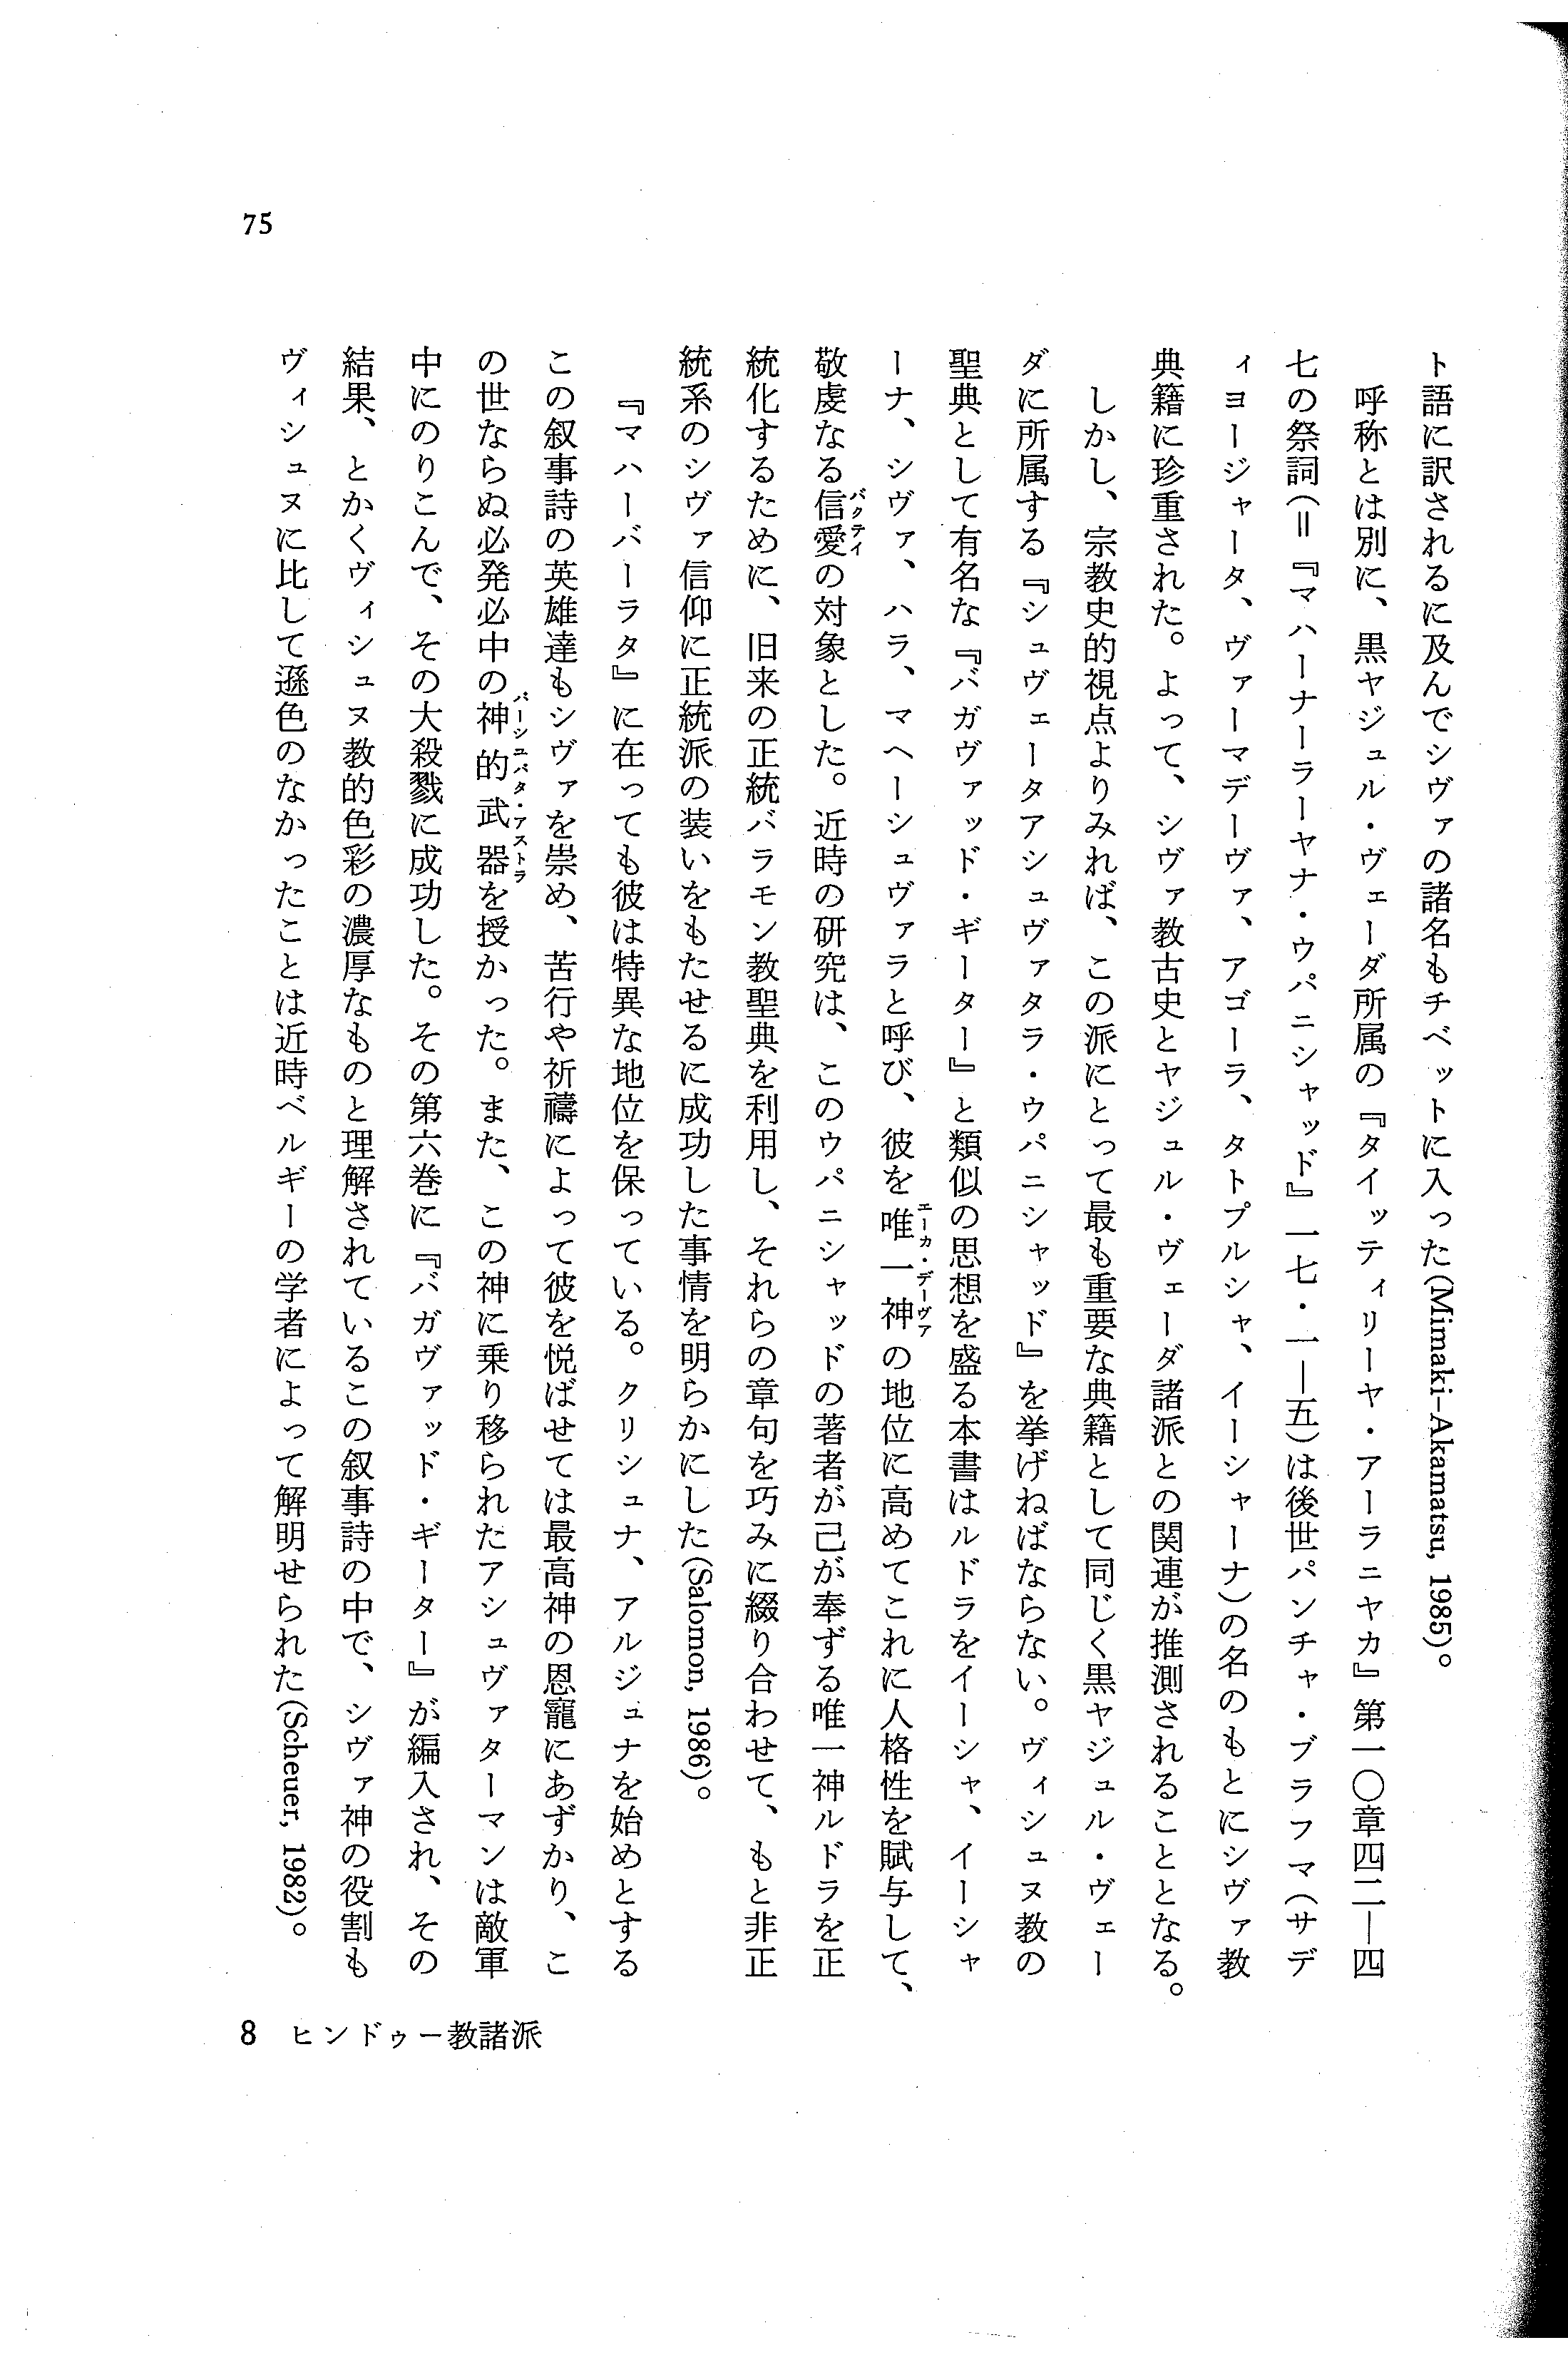 ト語に訳されるに及んでシヴァの諸名もチベットに入った(Mimaki–Akamatsu, 1985)。
呼称とは別に、黒ヤジュル・ヴェーダ所属の『タイッティリーヤ・アーラニヤカ』第一〇章四二—四
七の祭詞(=『マハーナーラーヤナ・ウパニシャッド』一七・一—五)は後世パンチャ・ブラフマ(サデ
ィヨージャータ、ヴァーマデーヴァ、アゴーラ、タトプルシャ、イーシャーナ)の名のもとにシヴァ教
典籍に珍重された。よって、シヴァ教古史とヤジュル・ヴェーダ諸派との関連が推測されることとなる。
しかし、宗教史的視点よりみれば、この派にとって最も重要な典籍として同じく黒ヤジュル・ヴェー
ダに所属する『シュヴェータアシュヴァタラ・ウパニシャッド』を挙げねばならない。ヴィシュヌ教の
聖典として有名な『バガヴァッド・ギーター』と類似の思想を盛る本書はルドラをイーシャ、イーシャ
ーナ、シヴァ、ハラ、マヘーシュヴァラと呼び、彼を唯一神の地位に高めてこれに人格性を賦与して、
エーカ・デーヴァ
敬虔なる信愛の対象とした。近時の研究は、このウパニシャッドの著者が己が奉ずる唯一神ルドラを正
バクティ
統化するために、旧来の正統バラモン教聖典を利用し、それらの章句を巧みに綴り合わせて、もと非正
統系のシヴァ信仰に正統派の装いをもたせるに成功した事情を明らかにした(Salomon, 1986)。
『マハーバーラタ』に在っても彼は特異な地位を保っている。クリシュナ、アルジュナを始めとする
この叙事詩の英雄達もシヴァを崇め、苦行や祈禱によって彼を悦ばせては最高神の恩寵にあずかり、こ
の世ならぬ必発必中の神的武器を授かった。また、この神に乗り移られたアシュヴァターマンは敵軍
パーシュパタ・アストラ
中にのりこんで、その大殺戮に成功した。その第六巻に『バガヴァッド・ギーター』が編入され、その
結果、とかくヴィシュヌ教的色彩の濃厚なものと理解されているこの叙事詩の中で、シヴァ神の役割も
ヴィシュヌに比して遜色のなかったことは近時ベルギーの学者によって解明せられた(Scheuer, 1982)。
75
8 ヒンドゥー教諸派